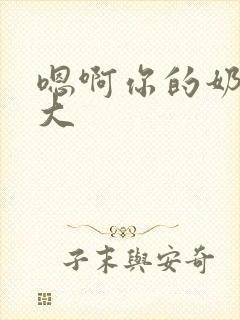 嗯啊你的奶
大
子末與安奇